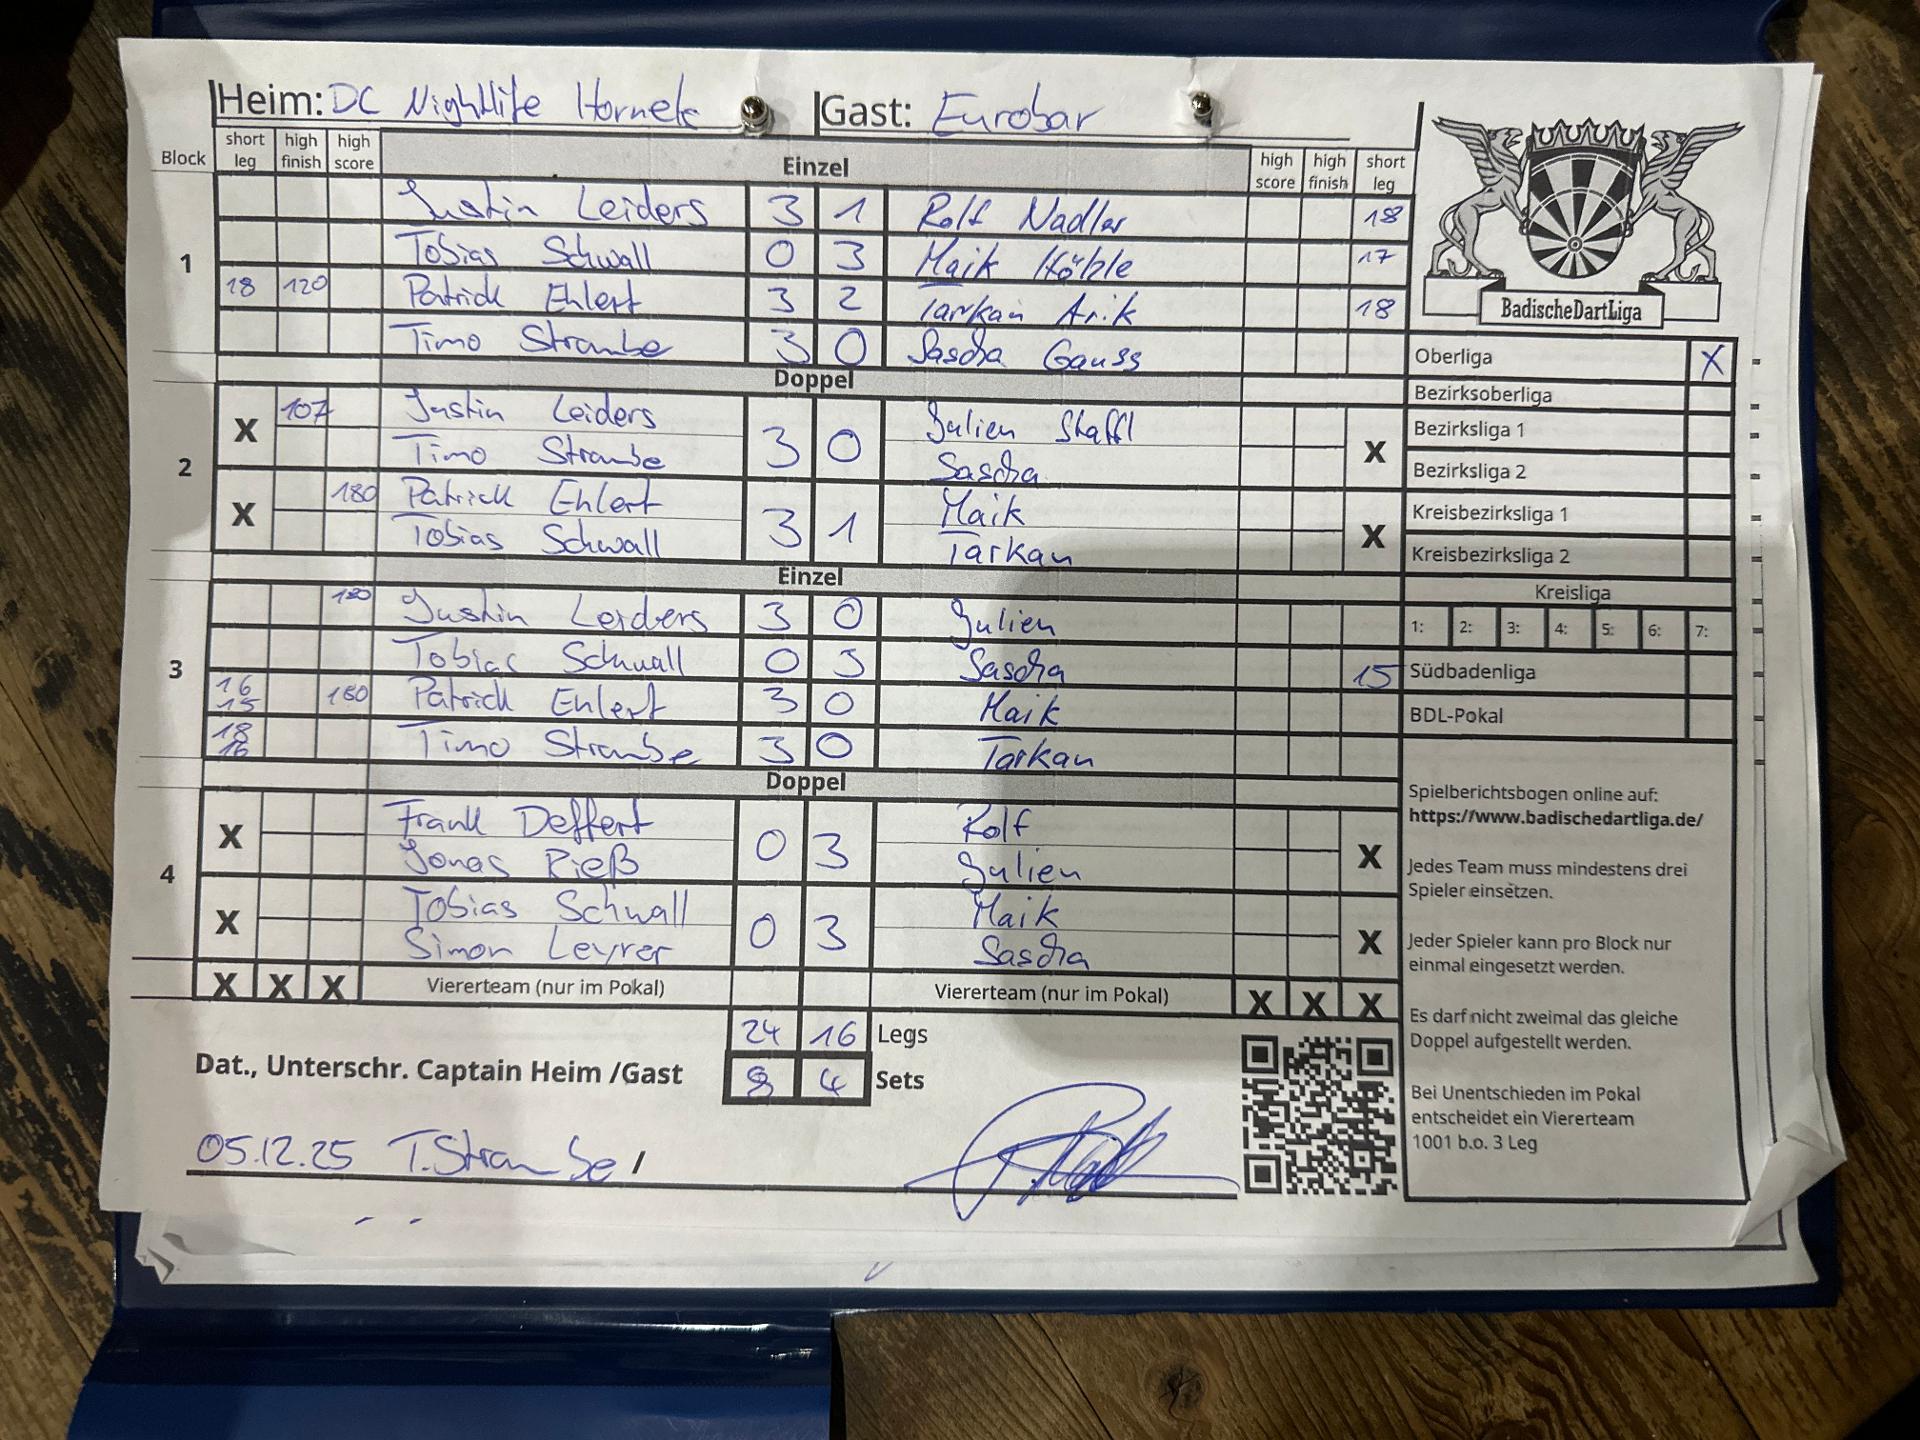 Heim: DC Nightlife Hornets Gast: Eurobar
Block short leg high finish high score Einzel high score high finish short leg
1
Justin Leiders 3 1 Rolf Nadler 18
Tobias Schwall 0 3 Maik Höhle 17
18 120 Patrick Ehlert 3 2 Tarkan Arik 18
Timo Straube 3 0 Sascha Gauss
Doppel
2
X 107 Justin Leiders 3 0 Julien Staffl X
Timo Straube Sascha
X 180 Patrick Ehlert 3 1 Maik X
Tobias Schwall Tarkan
Einzel
3
180 Justin Leiders 3 0 Julien
Tobias Schwall 0 3 Sascha 15
16 15 180 Patrick Ehlert 3 0 Maik
18 16 Timo Straube 3 0 Tarkan
Doppel
4
X Frank Deffert 0 3 Rolf X
Jonas Rieß Julien
X Tobias Schwall 0 3 Maik X
Simon Leyrer Sascha
X X X Viererteam (nur im Pokal) Viererteam (nur im Pokal) X X X
24 16 Legs
Dat., Unterschr. Captain Heim /Gast 8 4 Sets
05.12.25 T. Straube /
BadischeDartLiga
Oberliga X
Bezirksoberliga
Bezirksliga 1
Bezirksliga 2
Kreisbezirksliga 1
Kreisbezirksliga 2
Kreisliga
1: 2: 3: 4: 5: 6: 7:
Südbadenliga
BDL-Pokal
Spielberichtsbogen online auf:
https://www.badischedartliga.de/
Jedes Team muss mindestens drei
Spieler einsetzen.
Jeder Spieler kann pro Block nur
einmal eingesetzt werden.
Es darf nicht zweimal das gleiche
Doppel aufgestellt werden.
Bei Unentschieden im Pokal
entscheidet ein Viererteam
1001 b.o. 3 Leg